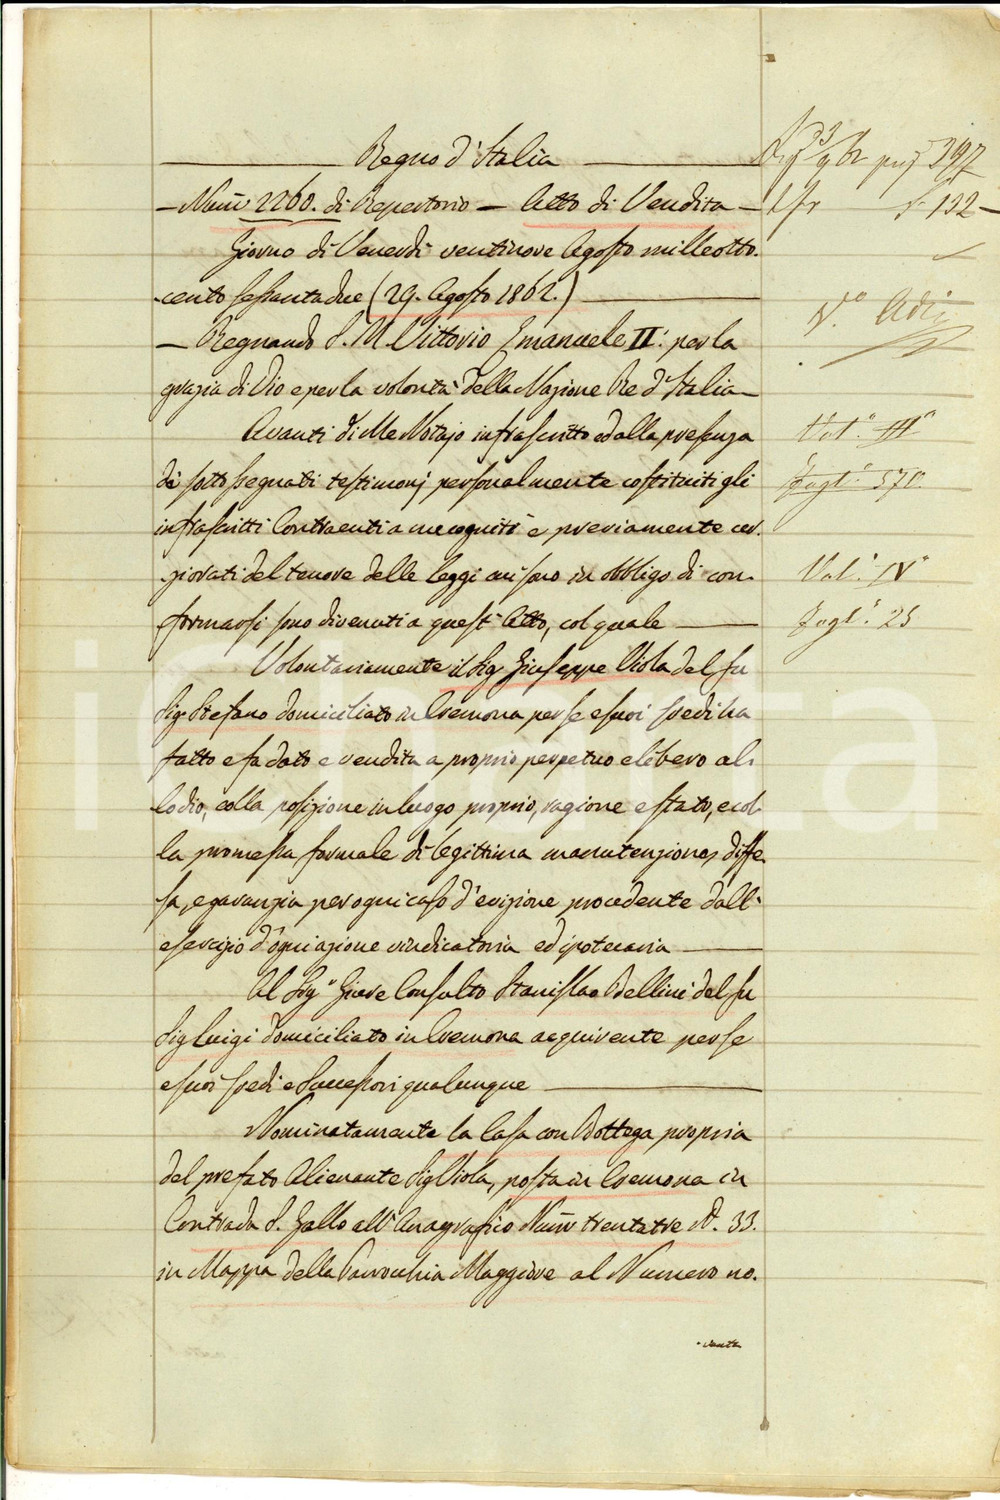 Regno d'Italia
Num 2260. di Repertorio – Atto di Vendita –
Giorno di Venerdì ventinove Agosto milleotto.
cento sessantadue (29. Agosto 1862.)
– Regnando S. M. Vittorio Emanuele II: per la
grazia di Dio e per la volontà della Nazione Re d'Italia –
Avanti di Me Notajo infrascritto ed alla presenza
dei sotto segnati testimonj personalmente costituiti gli
infrascritti Contraenti a me cogniti e previamente cer.
ziorati del tenore delle Leggi cui sono in obbligo di con.
formarsi sono divenuti a quest'Atto, col quale
Volontariamente il Sig Giuseppe Viola del fu
Sig Stefano domiciliato in Cremona per se e suoi eredi ha
fatto e fa dato e vendita a proprio perpetuo e libero al.
lodio, colla posizione in luogo proprio, ragione e stato, e col.
la promessa formale di legittima manutenzione, diffe.
sa, e garanzia per ogni caso d'evizione procedente dall'
esercizio d'ogni azione vindicatoria ed ipotecaria
Al Sig.r Giure Consulto Stanislao Bellini del fu
Sig Luigi domiciliato in Cremona acquirente per se
e suoi eredi e Successori qualunque
Nominatamente la Casa con Bottega propria
del prefato Alienante Sig Viola, posta in Cremona in
Contrada S. Gallo all'Anagrafico Num trentatre N. 33.
in Mappa della Parrocchia Maggiore al Numero no.
vanta
397
132 –
V.° Adi
Vol.e III°
Fogl.° 570.
Vol.e IV°
Fogl.° 25